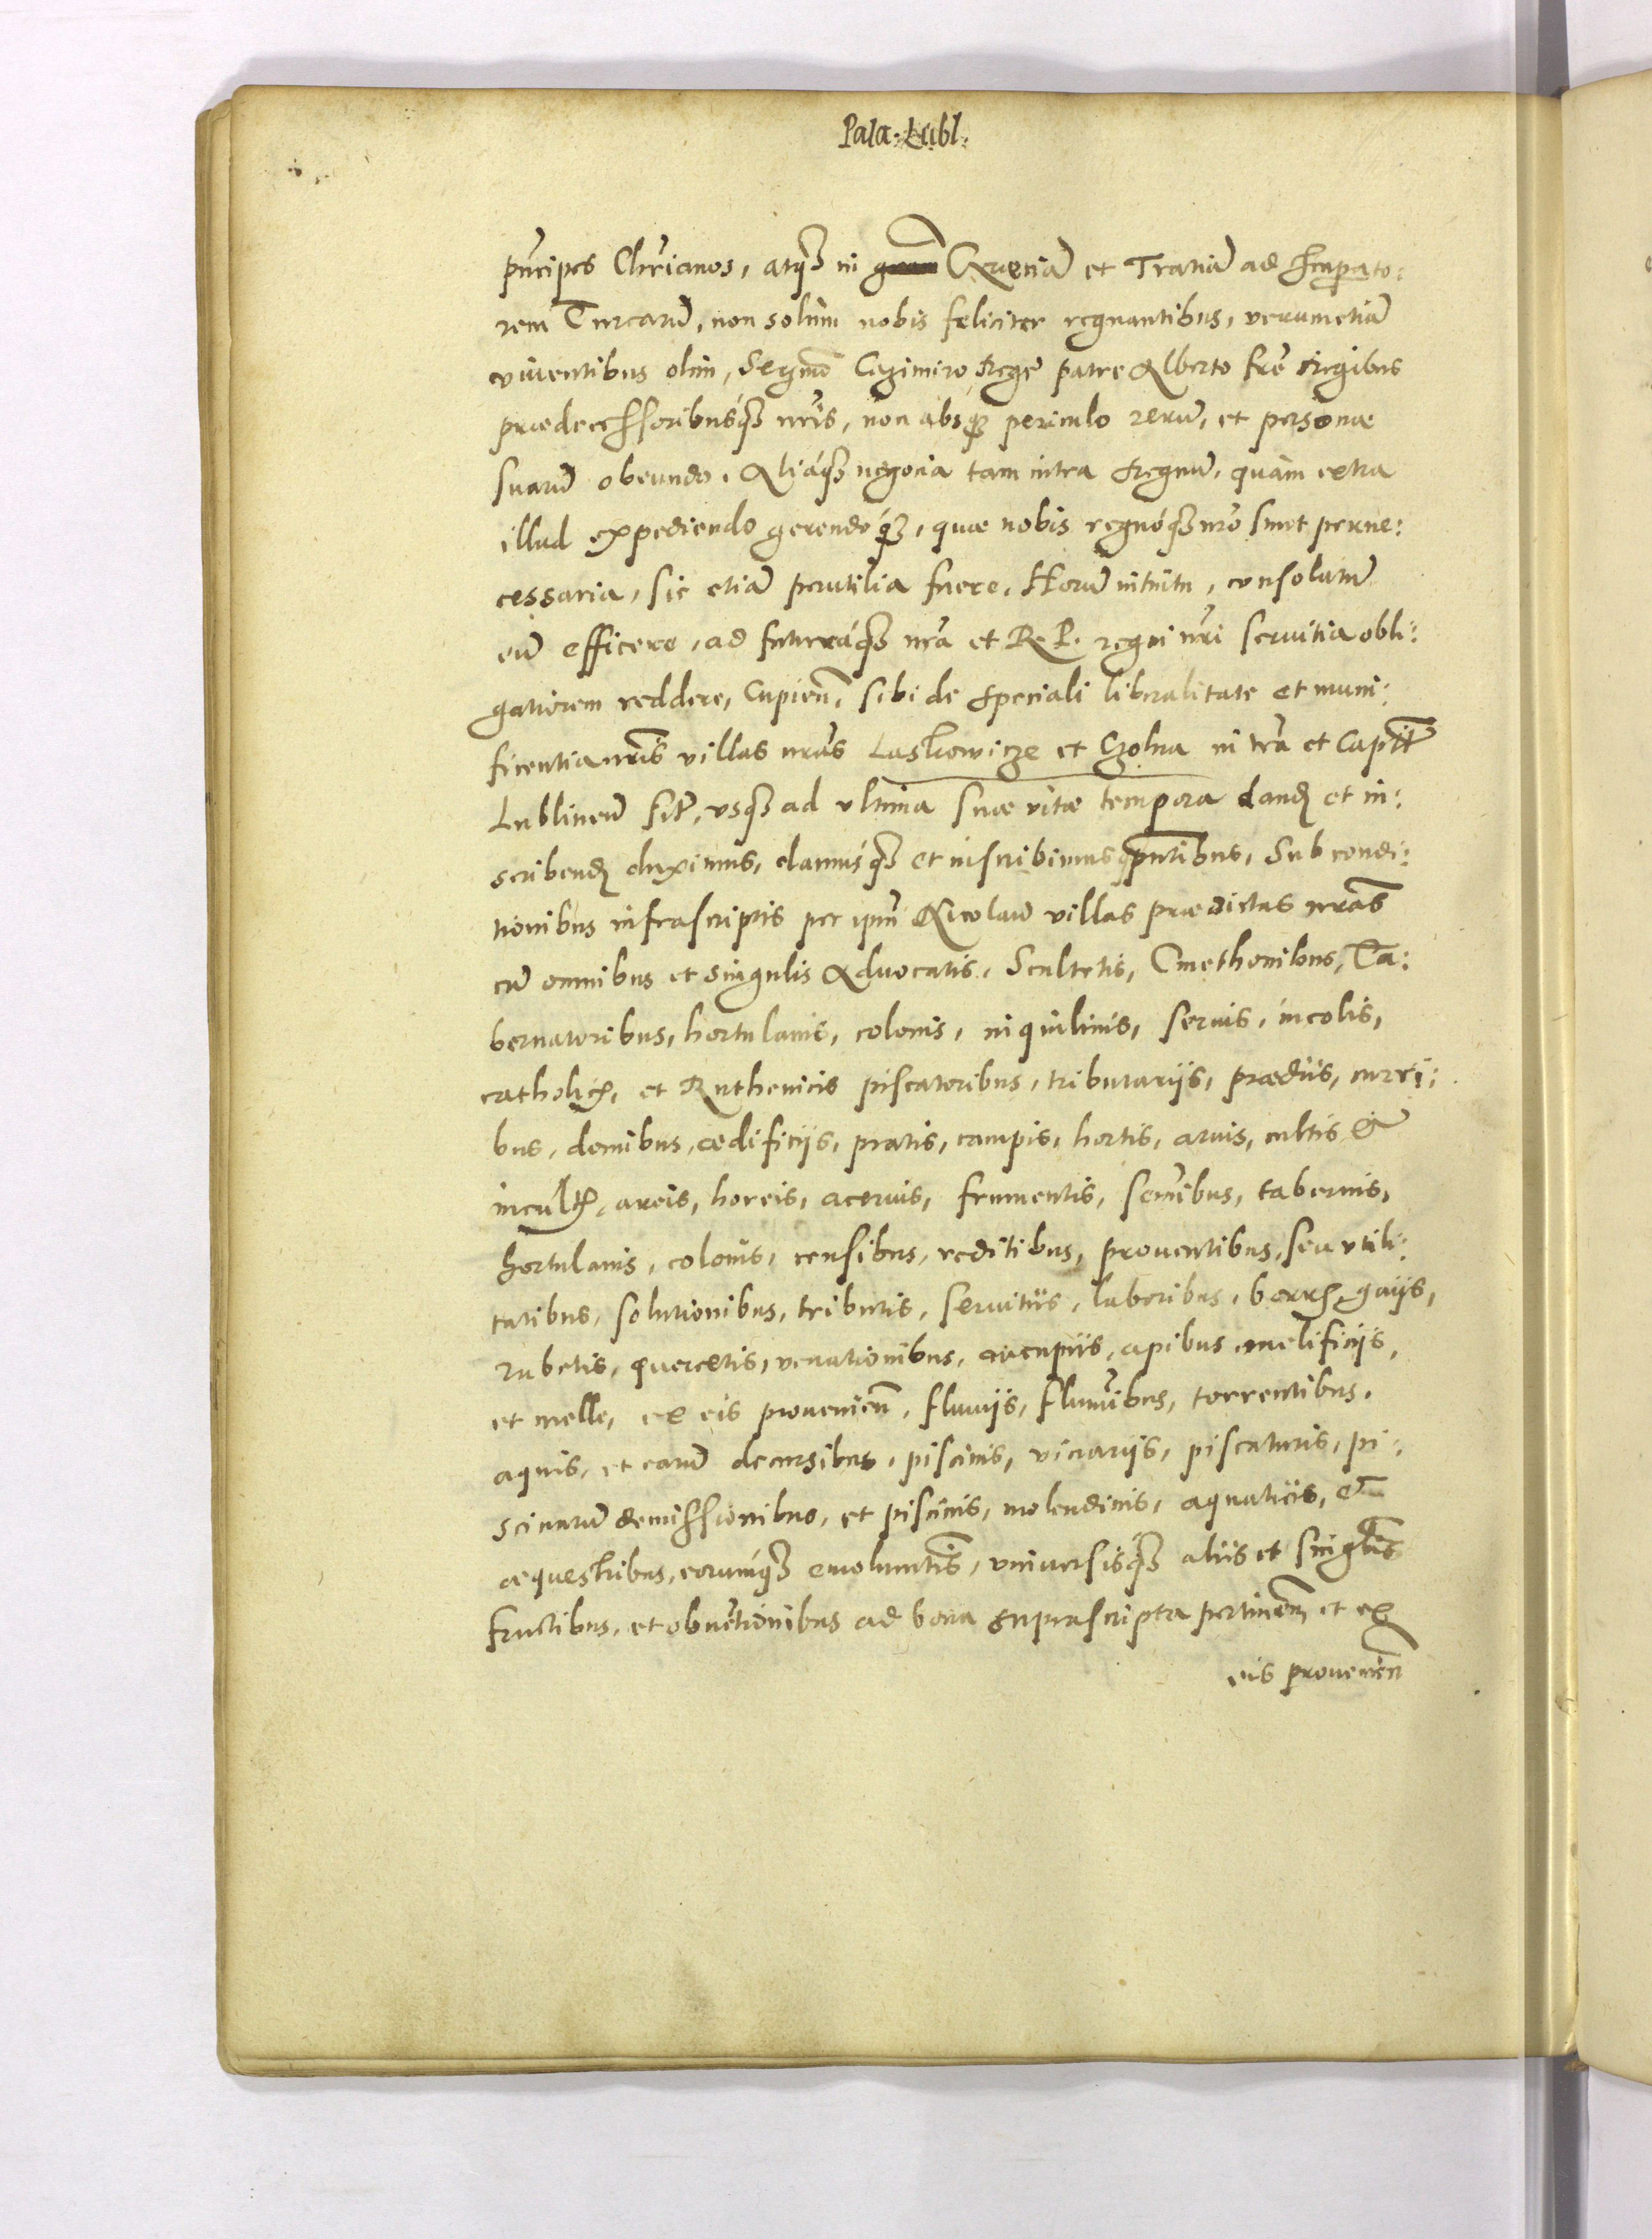 Pala: Lubl:
pñcipes Chr̃ianos, atq₃ in Gręciã et Traciã ad Impato:
rem Turcarũ, non solùm nobis feliciter regnantibus, verumetiã
viuentibus olim, Sermo Cazimiro Rege patre Alberto frẽ Regibus
praedecessoribusq́₃ nr̃is, non absq₃ periculo rerũ, et personae
suarũ obeundo. Aliáq₃ negocia tam intra Regnũ, quàm extra
illud expediendo gerendoq́₃, quae nobis regnóq₃ nr̃o sunt perne:
cessaria, sic etiã perutilia fuere. Horũ intuitu, consolatũ
eũ efficere, ad futuráq₃ nr̃a et R. P. regni nr̃i seruitia obli:
gatiorem reddere, Cupieñ. sibi de speciali liberalitate et muni:
ficentia nr̃is villas nr̃as Laskowicze et Czolna in tr̃a et Captũ
Lublineñ sit̃, vsq₃ ad vltima suae vitae tempora dand et in:
scribend duximus, damusq́₃ et inscribimus pñtibus, Sub condi:
tionibus infrascriptis per ipm̃ Nicolaũ villas praedictas nr̃as
cũ omnibus et singulis Aduocatis, Scultetis, Cmethonibus, Ta:
bernatoribus, hortulanis, colonis, inquilinis, seruis, incolis,
catholic, et Ruthenicis piscatoribus, tributarijs, praediis, curri:
bus, domibus, aedificijs, pratis, campis, hortis, aruis, cultis &
incult, areis, horeis, aceruis, frumentis, semĩbus, tabernis,
hortulanis, colonis, censibus, reditibus, prouentibus, seu vtili:
tatibus, solutionibus, tributis, seruitiis, laboribus, borris, gaijs,
rubetis, quercetis, venationibus, aucupiis, apibus melificijs,
et melle, ex eis prouenieñ, fluuijs, flumĩbus, torrentibus,
aquis, et earũ decursibus, piscinis, viuarijs, piscaturis, pi:
scinarũ demissionibus, et piscinis, molendinis, aquaticis, &
aequestribus, eorumq́₃ emolumentis, vniuersisq́₃ aliis et singlis
fructibus, et obuẽtionibus ad bona suprascripta pertineñ et ex
eis proueneñ